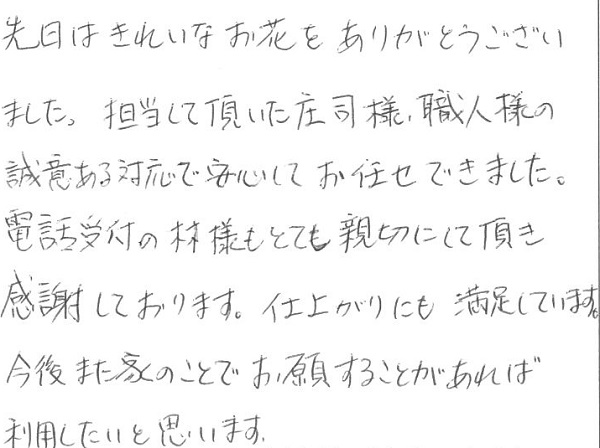 先日はきれいなお花をありがとうござい
ました。担当して頂いた庄司様、職人様の
誠意ある対応で安心してお任せできました。
電話受付の林様もとても親切にして頂き
感謝しております。仕上がりにも満足しています。
今後また家のことでお願することがあれば
利用したいと思います。